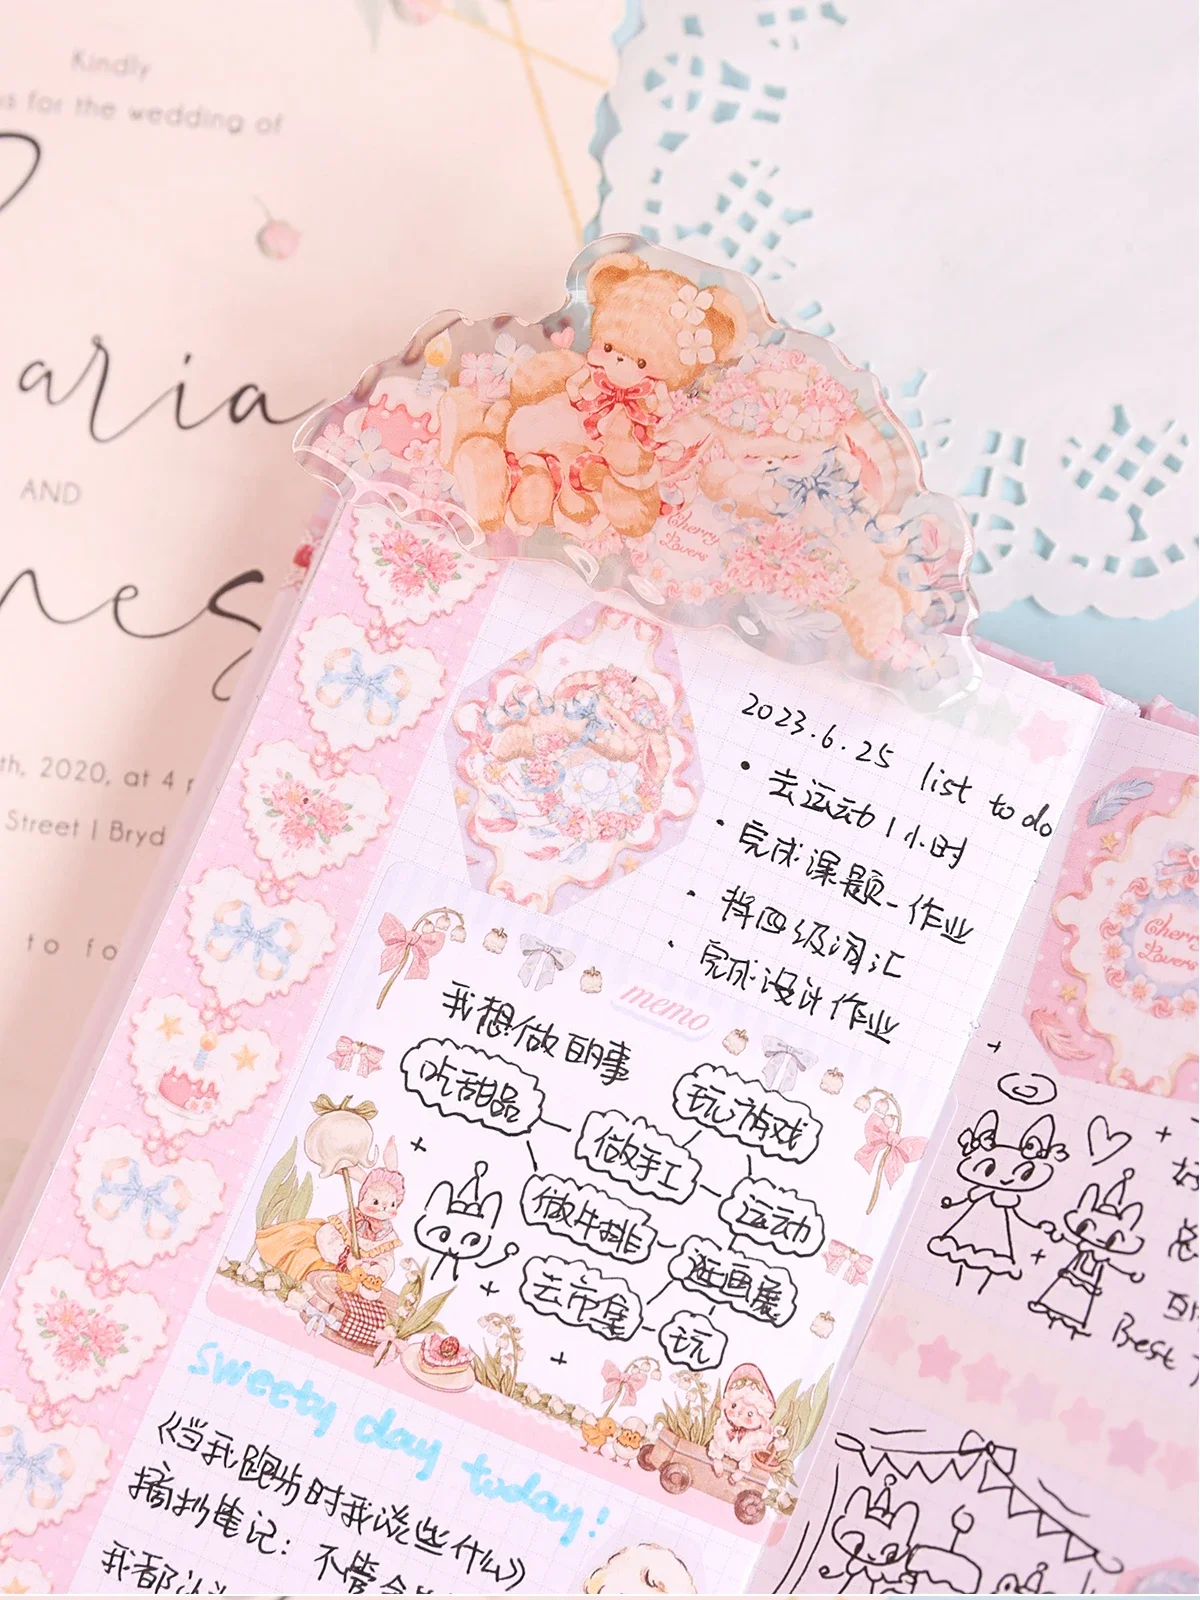 Kindly
s for the wedding of
aria
AND
nes
th, 2020, at 4 p
Street | Bryd
to fo
Cherry
Lovers
2023.6.25 list to do
• 去运动1小时
• 完成课题-作业
• 将四级词汇
• 完成设计作业
memo
我想做的事
吃甜品
玩游戏
做手工
做牛排
运动
逛画展
去市集
玩
sweety day today!
《当我跑步时我说些什么》
摘抄笔记: 不管
我都
Cherry
Lovers
Best